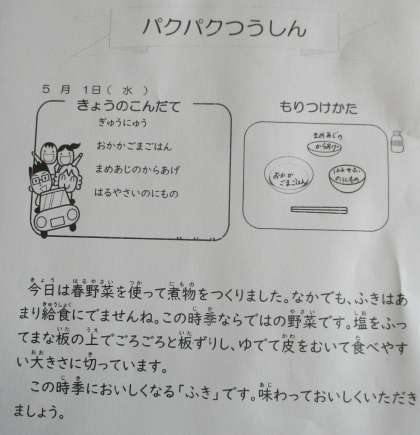 パクパクつうしん
5月 1日(水)
きょうのこんだて
ぎゅうにゅう
おかかごまごはん
まめあじのからあげ
はるやさいのにもの
もりつけかた
まめあじの
からあげ
おかか
ごまごはん
はるやさい
のにもの
今日は春野菜を使って煮物をつくりました。なかでも、ふきはあ
まり給食にでませんね。この時季ならではの野菜です。塩をふっ
てまな板の上でごろごろと板ずりし、ゆでて皮をむいて食べやす
い大きさに切っています。
この時季においしくなる「ふき」です。味わっておいしくいただき
ましょう。